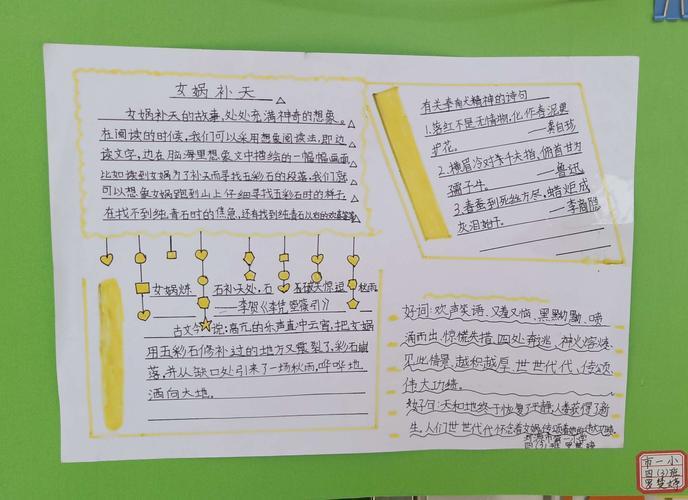 女娲补天
女娲补天的故事,处处充满神奇的想象。
在阅读的时候,我们可以采用想象阅读法,即边
读文字,边在脑海里想象文中描绘的一幅幅画面
比如读到女娲为了补天而寻找五彩石的段落,我们就
可以想象女娲跑到山上仔细寻找五彩石时的样子,
在找不到纯青石时的焦急,还有找到纯青石以后的欢喜等等
女娲炼 石补天处,石 破天惊逗 秋雨
——李贺《李凭箜篌引》
古文今 说:高亢的乐声直中云霄,把女娲
用五彩石修补过的地方又震裂了,彩石崩
落,并从缺口处引来了一场秋雨,哗哗地
洒向大地。
有关奉献精神的诗句
1.落红不是无情物,化作春泥更
护花。 ——龚自珍
2.横眉冷对千夫指,俯首甘为
孺子牛。 ——鲁迅
3.春蚕到死丝方尽,蜡炬成
灰泪始干。 ——李商隐
好词:欢声笑语、又羞又恼、黑黝黝、喷
涌而出、惊慌失措、四处奔逃、神火熔炼、
见此情景、越积越厚、世世代代、传颂
伟大功绩。
好句:天和地终于恢复了平静,人类获得了新
生,人们世世代代怀念着女娲,传颂着她的伟大功绩。
市第一小学
四(3)班
市一小
四(3)班